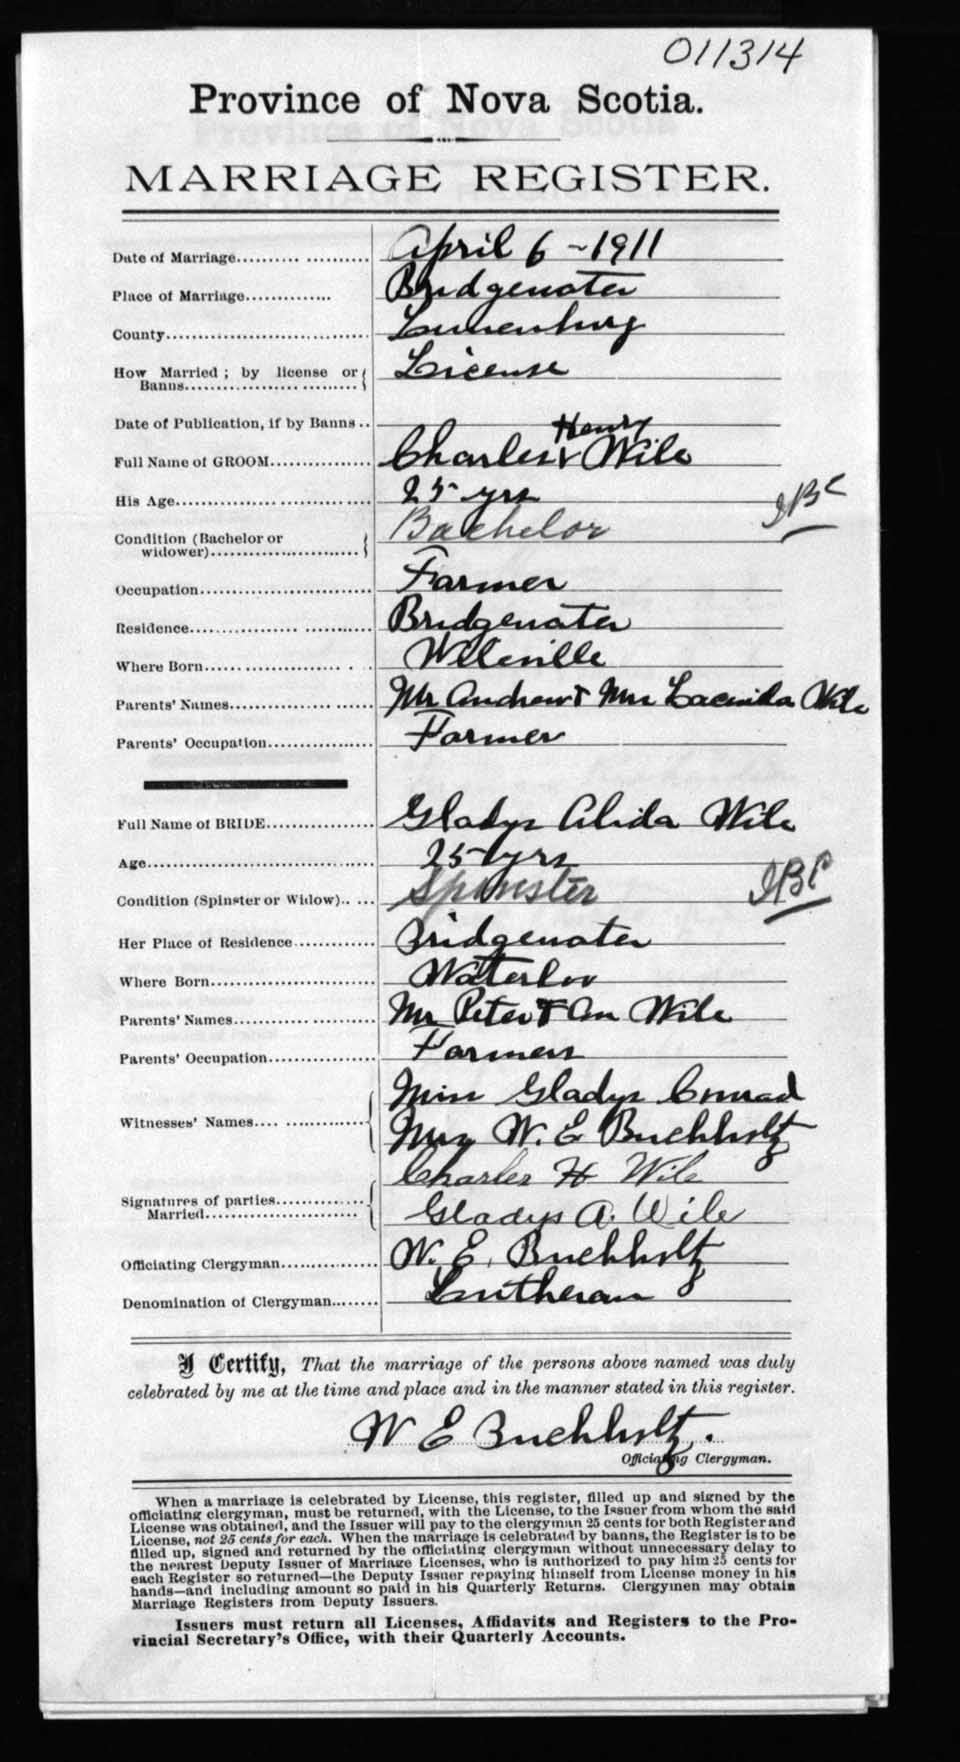 011314
Province of Nova Scotia.
MARRIAGE REGISTER.
Date of Marriage........... April 6 - 1911
Place of Marriage........... Bridgewater
County........... Lunenburg
How Married ; by license or
Banns........... License
Date of Publication, if by Banns ..
Henry
Full Name of GROOM........... Charles Wile
His Age........... 25 yrs
Condition (Bachelor or
widower)........... Bachelor
Occupation........... Farmer
Residence........... Bridgewater
Where Born........... Wileville
Parents' Names........... Mr Andrew & Mrs Wile
Parents' Occupation........... Farmer
Full Name of BRIDE........... Gladys Alida Wile
Age........... 25 yrs
Condition (Spinster or Widow)..... Spinster
Her Place of Residence........... Bridgewater
Where Born........... Waterloo
Parents' Names........... Mr Peter & An Wile
Parents' Occupation........... Farmers
Witnesses' Names........... Miss Gladys Conrad
Mrs W. E Buchholtz
Signatures of parties
Married........... Charles H Wile
Gladys A. Wile
Officiating Clergyman........... W. E. Buchholtz
Denomination of Clergyman........ Lutheran
I Certify, That the marriage of the persons above named was duly
celebrated by me at the time and place and in the manner stated in this register.
W E Buchholtz.
Officiating Clergyman.
When a marriage is celebrated by License, this register, filled up and signed by the
officiating clergyman, must be returned, with the License, to the Issuer from whom the said
License was obtained, and the Issuer will pay to the clergyman 25 cents for both Register and
License, not 25 cents for each. When the marriage is celebrated by banns, the Register is to be
filled up, signed and returned by the officiating clergyman without unnecessary delay to
the nearest Deputy Issuer of Marriage Licenses, who is authorized to pay him 25 cents for
each Register so returned—the Deputy Issuer repaying himself from License money in his
hands—and including amount so paid in his Quarterly Returns. Clergymen may obtain
Marriage Registers from Deputy Issuers.
Issuers must return all Licenses, Affidavits and Registers to the Pro-
vincial Secretary's Office, with their Quarterly Accounts.